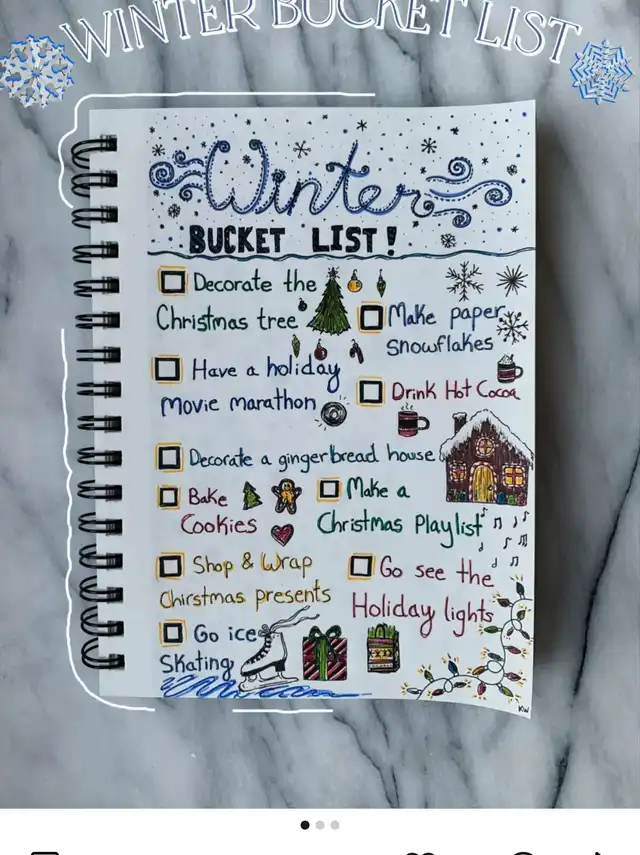 WINTER BUCKET LIST
Winter
BUCKET LIST!
Decorate the
Christmas tree
Make paper
snowflakes
Have a holiday
movie marathon
Drink Hot Cocoa
Decorate a gingerbread house
Bake
Cookies
Make a
Christmas Playlist
Shop & Wrap
Chirstmas presents
Go see the
Holiday lights
Go ice
Skating
KW